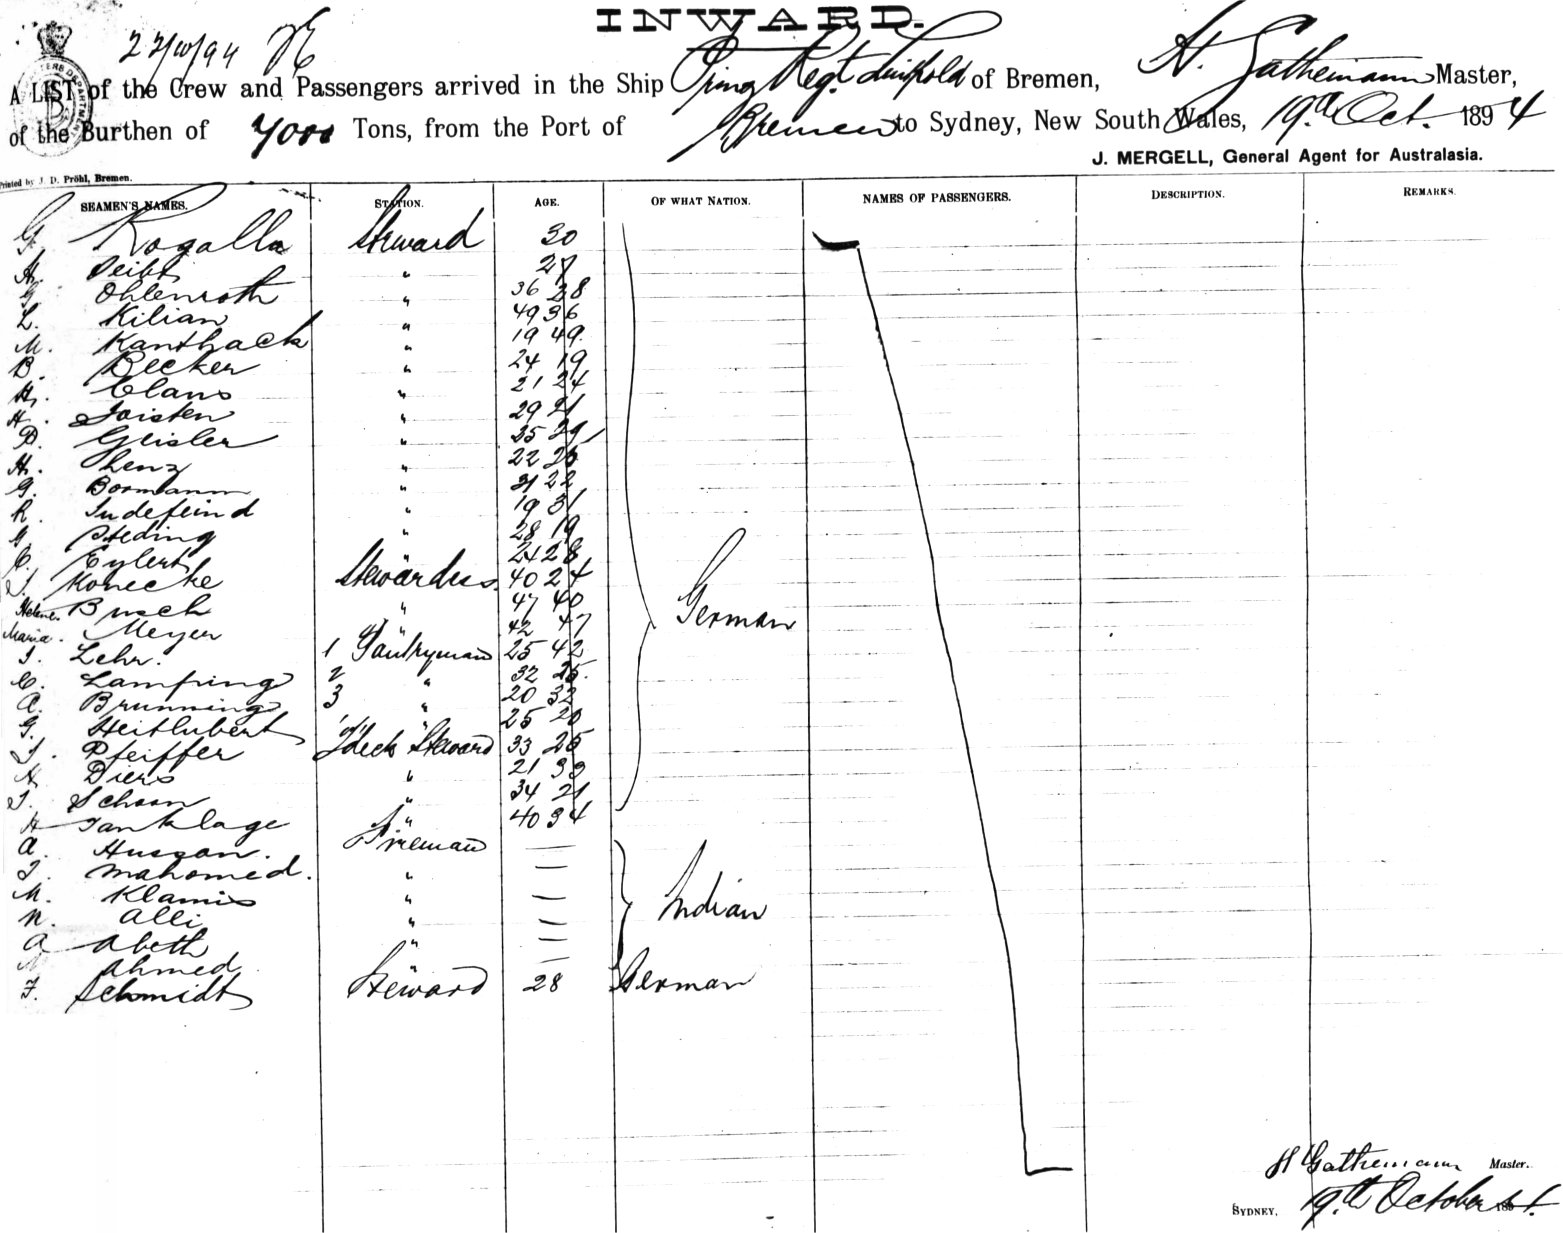 INWARD.
22/10/94
A LIST of the Crew and Passengers arrived in the Ship Prinz Regt. Luitpold of Bremen, H. Gathemann Master,
of the Burthen of 7000 Tons, from the Port of Bremen to Sydney, New South Wales, 19th Oct. 1894
J. MERGELL, General Agent for Australasia.
Printed by J. D. Pröhl, Bremen.
SEAMEN'S NAMES. STATION. AGE. OF WHAT NATION. NAMES OF PASSENGERS. DESCRIPTION. REMARKS.
G. Rogalla Steward 30
A. Seibt " 27
G. Ohlenroth " 36 28
L. Kilian " 49 36
M. Kanthack " 19 49
B. Becker " 24 19
H. Claus " 21 24
H. Joisten " 29 21
D. Geisler " 25 29
H. Lenz " 22 25
G. Bormann " 31 22
R. Indefeind " 19 31
G. Steding " 28 19
C. Eylert " 24 28
J. Konecke Stewardess 40 24
Helene Busch " 47 40 German
Maria Meyer " 42 47
J. Lehr. 1 Pantryman 25 42
C. Lamping 2 " 32 25
A. Brunning 3 " 20 32
G. Heitlubert " 25 20
J. Pfeiffer Deck Steward 33 25
A. Diers " 21 33
J. Schoon " 34 21
H Tanklage " 40 34
A. Hussan. Fireman —
J. Mahomed. " —
M. Klamis " — Indian
N. Alli " —
A Abeth " —
Ahmed " —
F. Schmidt Steward 28 German
H Gathemann Master.
SYDNEY, 19th October 1894.